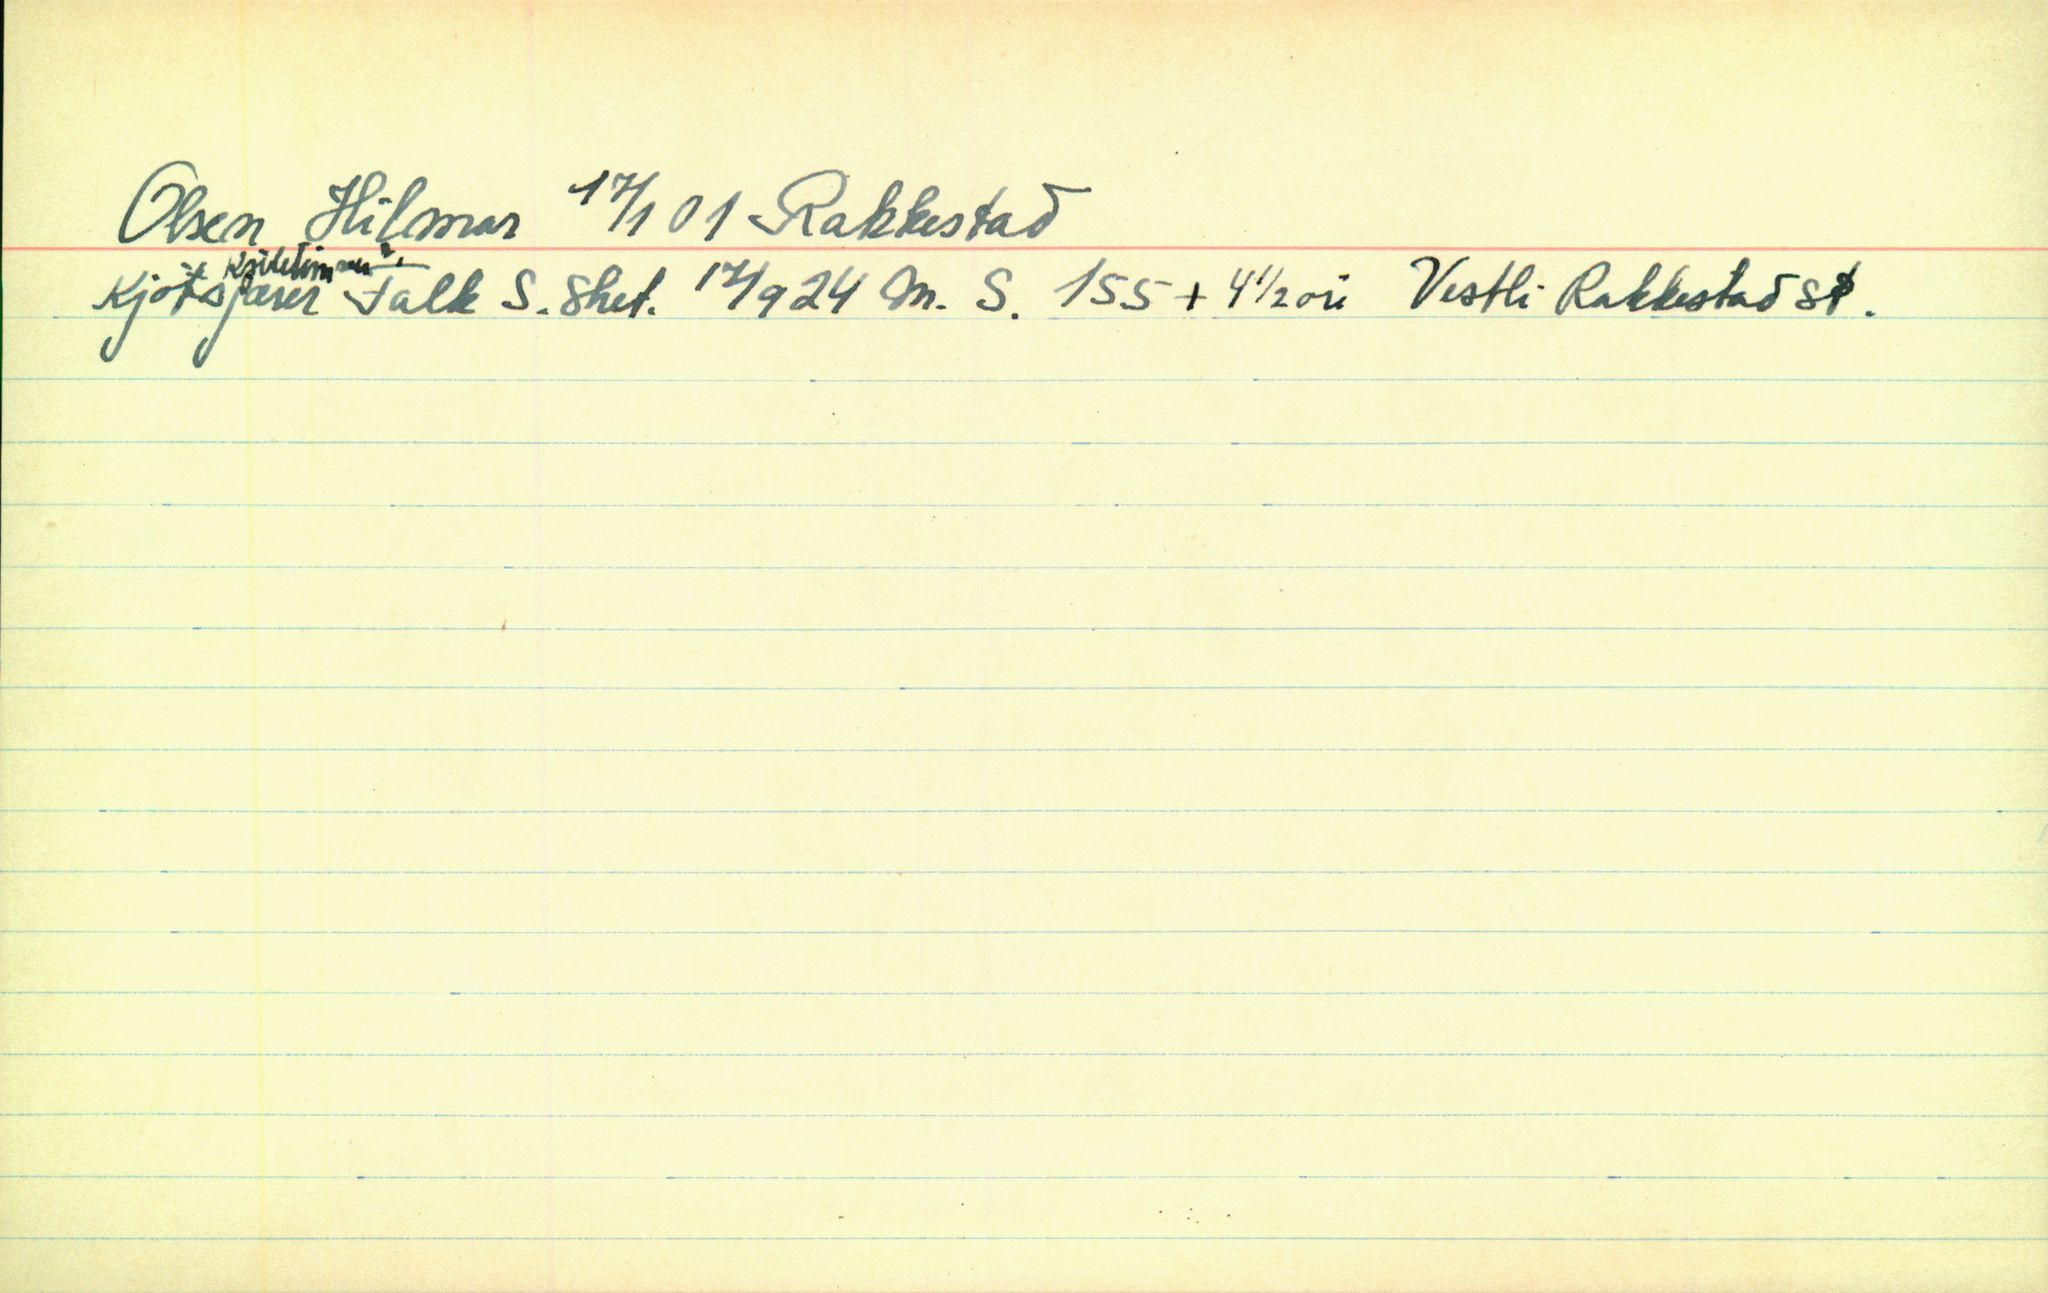 Olsen Hilmar 17/1 01 Rakkestad
Kjøtskjærer Falk S. Shet. 17/9 24 M. S. 155 + 4 1/2 öre Vestli Rakkestad st.